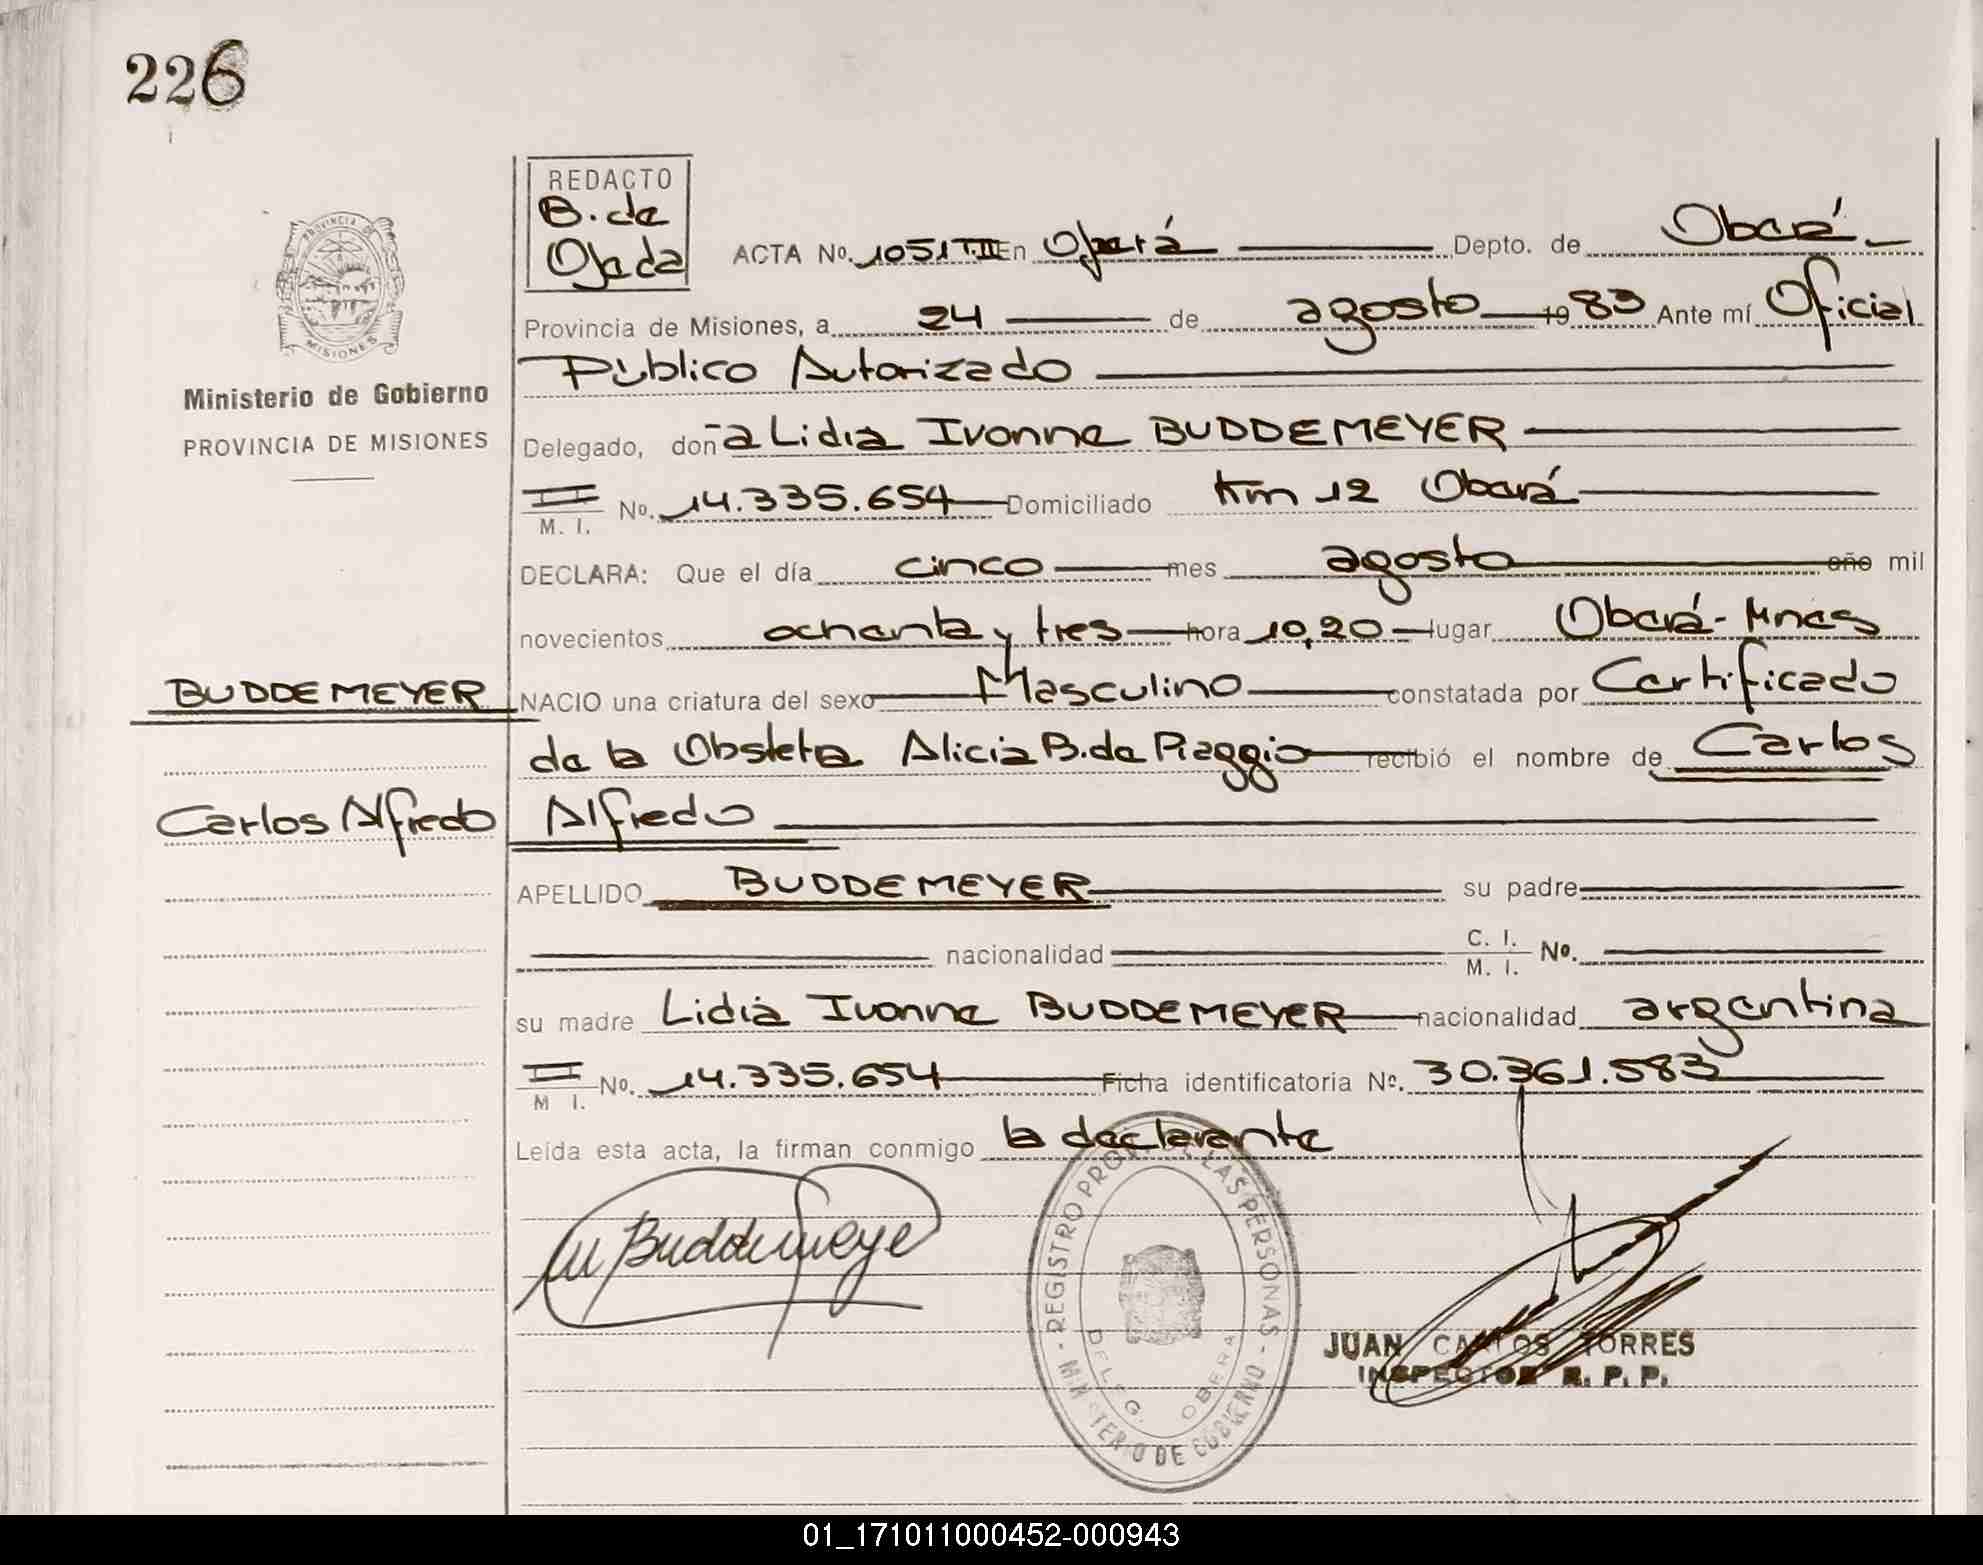 226
PROVINCIA DE
MISIONES
Ministerio de Gobierno
PROVINCIA DE MISIONES
REDACTO
B. de
Ojeda
ACTA Nº. 1051 T.II En Oberá Depto. de Oberá
Provincia de Misiones, a 24 de agosto 1983 Ante mí Oficial
Público Autorizado
Delegado, doña Lidia Ivonne BUDDEMEYER
M. I. Nº. 14.335.654 Domiciliado Km 12 Oberá
DECLARA: Que el día cinco mes agosto año mil
novecientos ochenta y tres hora 10,20 lugar Oberá - Mnes
BUDDEMEYER NACIO una criatura del sexo Masculino constatada por Certificado
de la Obsteta Alicia B. de Piaggio recibió el nombre de Carlos
Carlos Alfredo Alfredo
APELLIDO BUDDEMEYER su padre
nacionalidad C. I. M. I. Nº.
su madre Lidia Ivonne BUDDEMEYER nacionalidad argentina
M I. Nº. 14.335.654 Ficha identificatoria Nº. 30.361.583
Leída esta acta, la firman conmigo la declarante
Buddemeye
REGISTRO PROV. DE LAS PERSONAS - MINISTERIO DE GOBIERNO -
DELEG. OBERA
JUAN CARLOS TORRES
INSPECTOR R. P. P.
01_171011000452-000943